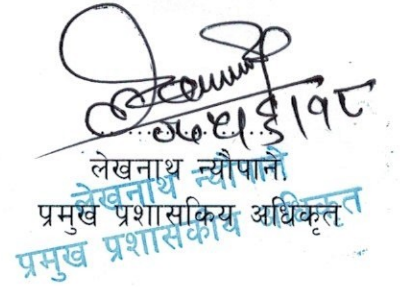 लेखनाथ न्यौपाने
प्रमुख प्रशासकिय अधिकृत
लेखनाथ न्यौपाने
प्रमुख प्रशासकीय अधिकृत